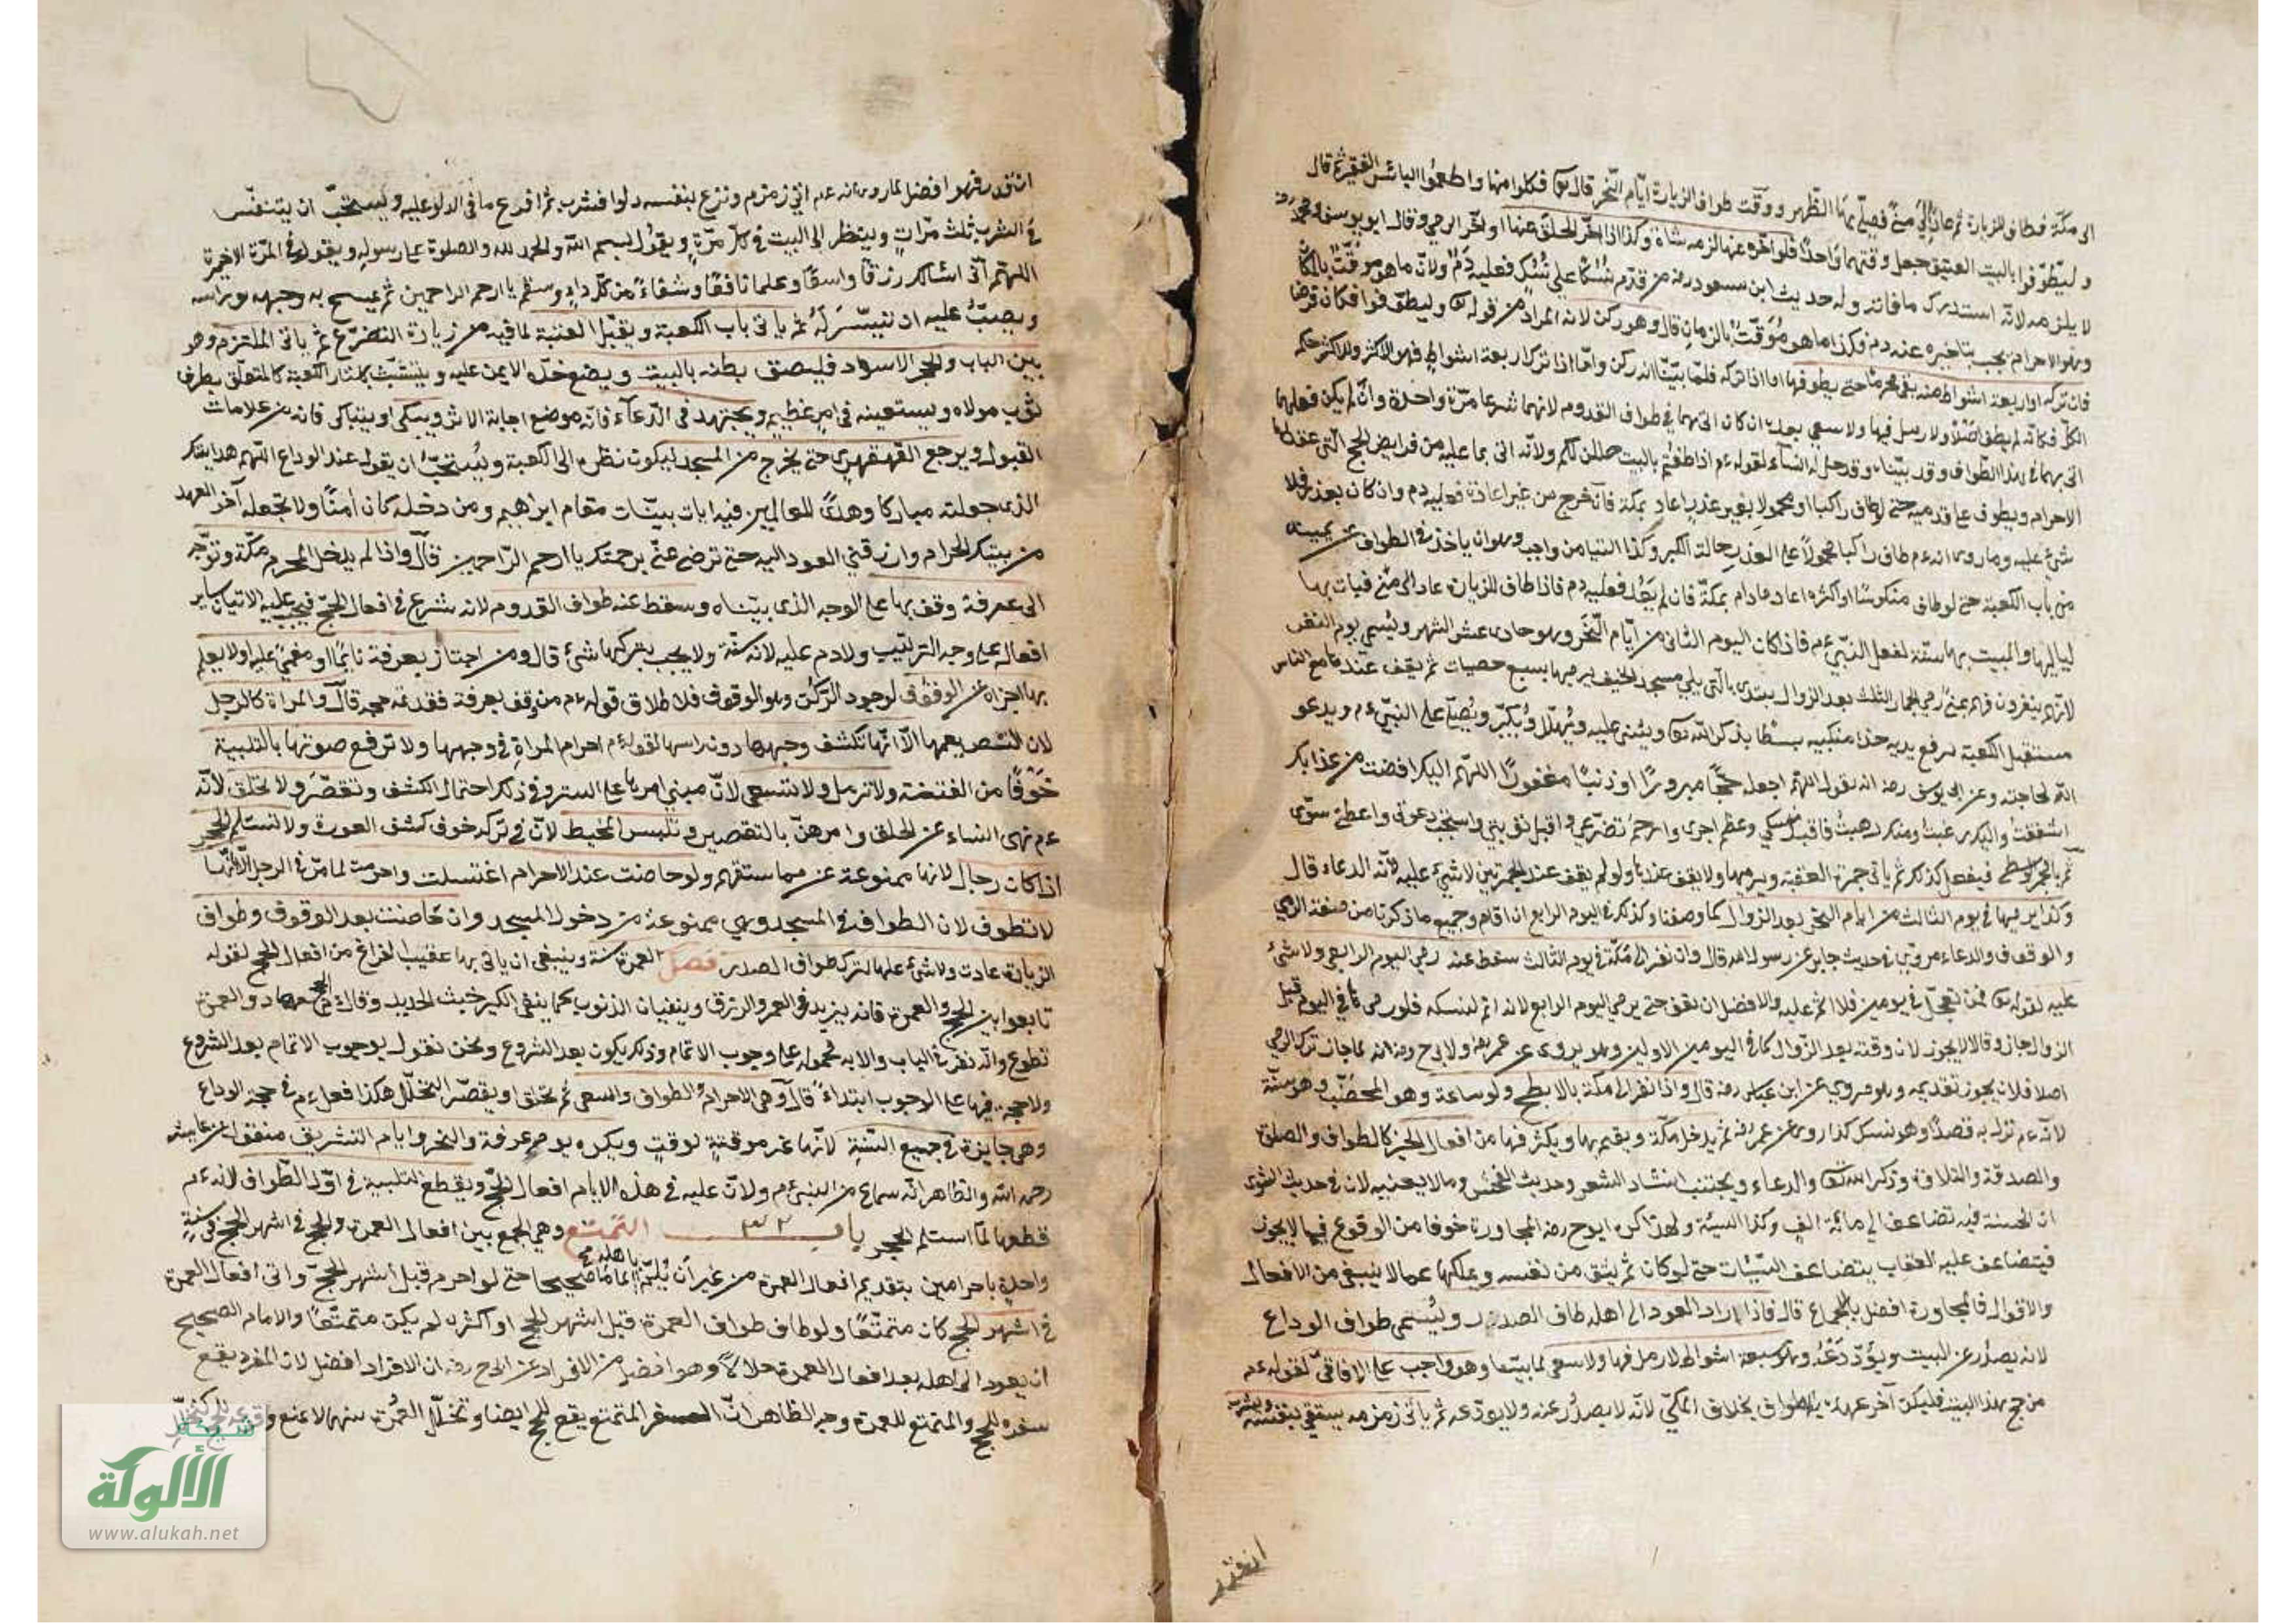 الى مكة فطاف للزيارة ثم عاد الى منى فصلى بها الظهر ووقت طواف الزيارة ايام النحر قال تع فكلوا منها واطعموا البائس الفقير ثم قال
وليطوفوا بالبيت العتيق جعل وقتهما واحدا فلو اخره عنها لزمه شاة وكذا اذا اخر الحلق عنها او اخر الرمي وقال ابو يوسف ومحمد
لا يلزمه لانه استدرك ما فاته وله حديث ابن مسعود رضه من قدم نسكا على نسك فعليه دم ولان ما هو موقت بالمكان
وهو الاحرام يجب بتاخيره عنه دم فكذا ما هو موقت بالزمان قال وهو ركن لانه المراد من قوله تع وليطوفوا فكان فرضا
فان تركه او اربعة اشواط منه بقى محرما حتى يطوفها اما اذا تركه فلما بينا انه ركن واما اذا ترك اربعة اشواط فهو الاكثر وللاكثر حكم
الكل فكانه لم يطف اصلا ولا رمل فيها ولا سعى بعده ان كان اتى بهما في طواف القدوم لانهما شرعا مرة واحدة وان لم يكن فعلهما
اتى بهما في هذا الطواف وقد بيناه وقد حل له النساء لقوله ءم اذا طفتم بالبيت حللن لكم ولانه اتى بما عليه من فرايض الحج التي عقد لها
الاحرام ويطوف على قدميه حتى لو طاف راكبا او محمولا بغير عذر اعاد بمكة فان خرج من غير اعادة فعليه دم وان كان بعذر فلا
شئ عليه وما روى انه ءم طاف راكبا محمولا على العذر حالة الكبر وكذا التيامن واجب وهو ان ياخذ في الطواف عن يمينه
من باب الكعبة حتى لو طاف منكوسا او اكثره اعاد مادام بمكة فان لم يعد فعليه دم فاذا طاف للزيارة عاد الى منى فبات بها
لياليها والمبيت بها سنة لفعل النبي ءم فاذا كان اليوم الثاني من ايام النحر وهو حادى عشر الشهر ويسمى يوم النفر
لانهم ينفرون فيه بمنى رمي الجمار الثلث بعد الزوال يبتدئ بالتي يلي مسجد الخيف يرميها بسبع حصيات ثم يقف عندها مع الناس
مستقبل الكعبة يرفع يديه حذاء منكبيه بسطا يذكر الله تع ويثنى عليه ويهلل ويكبر ويصلى على النبي ءم ويدعو
الله لحاجته وعن ابي يوسف رضه انه يقول اللهم اجعله حجا مبرورا وذنبا مغفورا اللهم اليك افضت من عذابك
اشفقت واليك رغبت ومنك رهبت فاقبل نسكي وعظم اجرى وارحم تضرعي واقبل توبتي واستجب دعوتى واعطنى سؤلى
ثم بالجمرة الوسطى فيفعل كذلك ثم ياتى جمرة العقبة ويرميها ولا يقف عندها ولو لم يقف عند الجمرتين لا شئ عليه لانه الدعاء قال
وكذا يرميها في يوم الثالث من ايام النحر بعد الزوال كما وصفنا وكذلك في اليوم الرابع ان اقام وجميع ما ذكرنا من صفة الرمي
والوقوف والدعاء مروى في حديث جابر عن رسول الله قال وان نفر الى مكة في يوم الثالث سقط عنه رمي اليوم الرابع ولا شئ
عليه لقوله تع فمن تعجل في يومين فلا اثم عليه والافضل ان يقف حتى يرمي اليوم الرابع لانه اتم لنسكه فلو رمى في اليوم قبل
الزوال جاز وقالا لا يجوز لان وقته بعد الزوال كما في اليومين الاولين وهو يروى عن عمر رضه ولابي ح رضه انه لما جاز ترك الرمي
اصلا فلان يجوز تقديمه وهو مروي عن ابن عباس رضه قال واذا نفر الى مكة بالابطح ولو ساعة وهو المحصب وهو سنة
لانه ءم نزل به قصدا وهو نسك كذا روى عن عمر رضه ثم يدخل مكة ويقيم بها ويكثر فيها من افعال الخير كالطواف والصلوة
والصدقة والتلاوة وذكر الله تع والدعاء ويجتنب انشاد الشعر وحديث الفحش وما لا يعنيه لان في حديث
ان الحسنة فيه تضاعف الى مائة الف وكذا السيئة ولهذا كره ابو ح رضه المجاورة خوفا من الوقوع فيما لا يجوز
فيتضاعف عليه العقاب بتضاعف السيئات حتى لو كان ثم يثق من نفسه ويملكها عما لا ينبغى من الافعال
والاقوال فالمجاورة افضل بالاجماع قال فاذا اراد العود الى اهله طاف الصدر ويسمى طواف الوداع
لانه يصدر عن البيت ويودعه وهو سبعة اشواط لا رمل فيها ولا سعى لما بينا وهو واجب على الافاقي لقوله ءم
من حج هذا البيت فليكن آخر عهده به الطواف بخلاف المكي لانه لا يصدر عنه ولا يودعه ثم يأتى زمزم يستقي بنفسه ويشرب
ان قدر
ان قدر فهو افضل لما روى انه ءم اتي زمزم ونزع لنفسه دلوا فشرب ثم افرغ ما في الدلو عليه ويستحب ان يتنفس
في الشرب ثلث مرات وينظر الى البيت في كل مرة ويقول بسم الله والحمد لله والصلوة على رسوله ويقول في المرة الاخيرة
اللهم انى اسئلك رزقا واسعا وعلما نافعا وشفاء من كل داء وسقم يا ارحم الراحمين ثم يمسح به وجهه وراسه
ويصب عليه ان تيسر له ثم ياتى باب الكعبة ويقبل العتبة لما فيه من زيادة التضرع ثم ياتى الملتزم وهو
بين الباب والحجر الاسود فيلصق بطنه بالبيت ويضع خده الايمن عليه ويتشبث باستار الكعبة كالمتعلق بطرف
ثوب مولاه ويستعينه في امر عظيم ويجتهد في الدعاء فانه موضع اجابة الاثر ويبكى او يتباكى فانه من علامات
القبول ويرجع القهقهرى حتى يخرج من المسجد ليكون نظره الى الكعبة ويستحب ان يقول عند الوداع اللهم هذا بيتك
الذى جعلته مباركا وهدى للعالمين فيه ايات بينات مقام ابراهيم ومن دخله كان امنا ولا تجعله آخر العهد
من بيتك الحرام وارزقني العود اليه حتى ترضى عنى برحمتك يا ارحم الراحمين قال واذا لم يدخل المحرم مكة وتوجه
الى عرفة وقف بها على الوجه الذى بيناه وسقط عنه طواف القدوم لانه شرع في افعال الحج فيجب عليه الاتيان بساير
افعاله على وجه الترتيب ولا دم عليه لانه سنة ولا يجب بتركها شئ قال ومن اجتاز بعرفة نائما او مغمى عليه او لا يعلم
بها اجزاه عن الوقوف لوجود الركن وهو الوقوف فلاطلاق قوله ءم من وقف بعرفة فقد تم حجه قال والمراة كالرجل
لان النص يعمها الا انها تكشف وجهها دون راسها لقوله ءم احرام المراة في وجهها ولا ترفع صوتها بالتلبية
خوفا من الفتنة ولا ترمل ولا تسعى لان مبنى امرها على الستر وفي ذلك احتمال الكشف وتقصر ولا تحلق لانه
ءم نهى النساء عن الحلق وامرهن بالتقصير وتلبس المخيط لان في تركه خوف كشف العورة ولا تستلم الحجر
اذا كان رجال لانها ممنوعة عن مماستهم ولو حاضت عند الاحرام اغتسلت واحرمت لما مر في الرجل الا انها
لا تطوف لان الطواف في المسجد وهي ممنوعة من دخول المسجد وان حاضت بعد الوقوف وطواف
الزيارة عادت ولا شئ عليها لترك طواف الصدر فصل العمرة سنة وينبغى ان ياتى بها عقيب الفراغ من افعال الحج لقوله
تابعوا بين الحج والعمرة فانه يزيد في العمر والرزق وينفيان الذنوب كما ينفى الكير خبث الحديد وقال ءم الحج جهاد والعمرة
تطوع وانه نص في الباب والاية محمولة على وجوب الاتمام وذلك يكون بعد الشروع ونحن نقول بوجوب الاتمام بعد الشروع
ولا حجة فيها على الوجوب ابتداء قال وهي الاحرام والطواف والسعى ثم يحلق او يقصر للتحلل هكذا فعل ءم في حجة الوداع
وهي جايزة في جميع السنة لانها غير موقتة لوقت ويكره يوم عرفة والنحر وايام التشريق منقول عن عايشة
رحمه الله والظاهر انه سماع من النبي ءم ولان عليه في هذه الايام افعال الحج ويقطع التلبية في اول الطواف لانه ءم
قطعها لما استلم الحجر باب التمتع وهي الجمع بين افعال العمرة والحج في اشهر الحج في سنة
واحدة باحرامين بتقديم افعال العمرة من غير ان يلم باهله الماما صحيحا حتى لو احرم قبل اشهر الحج واتى افعال العمرة
في اشهر الحج كان متمتعا ولو طاف طواف العمرة قبل اشهر الحج او اكثره لم يكن متمتعا والالمام الصحيح
ان يعود الى اهله بعد افعال العمرة حلالا وهو افضل من الافراد عن ابي ح رضه ان الافراد افضل لان المفرد يقع
سفره للحج والمتمتع للعمرة وجه الظاهر ان سفر المتمتع يقع للحج ايضا وتخلل العمرة بينهما لا يمنع
شبكة
الألوكة
www.alukah.net